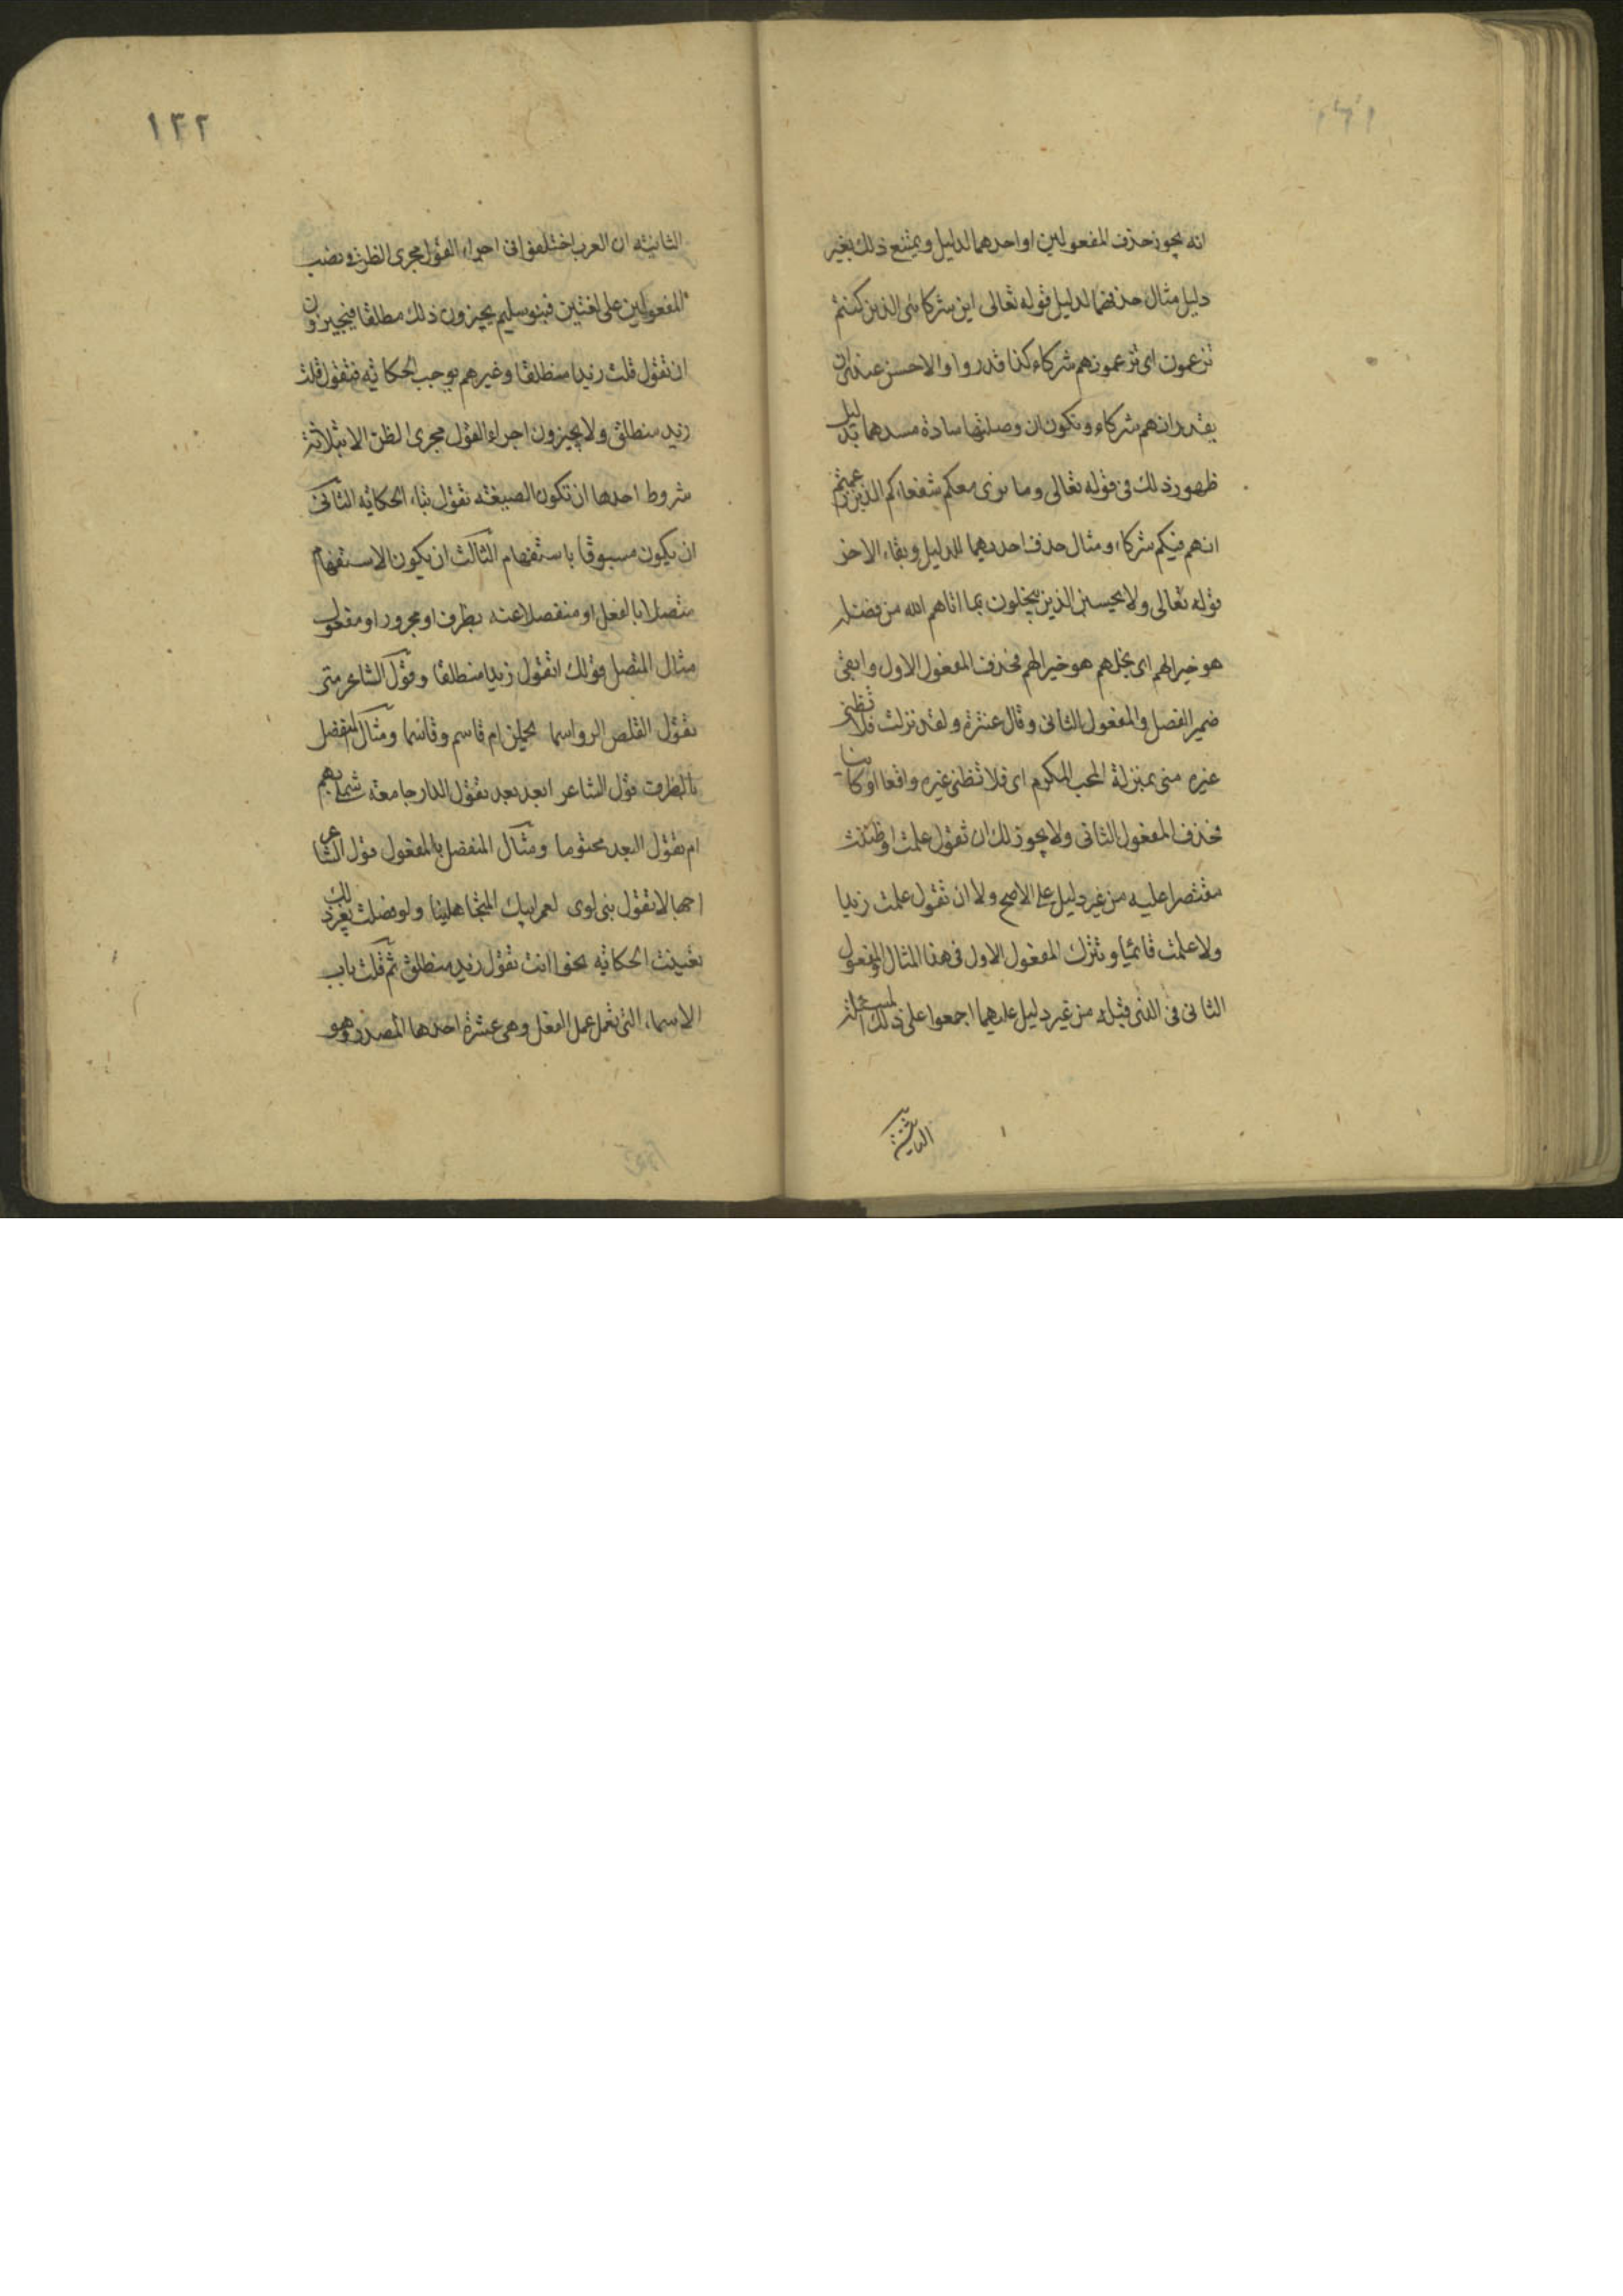 انه يجوز حذف المفعولين او احدهما لدليل ويمتنع ذلك بغير
دليل مثال حذفهما لدليل قوله تعالى اين شركائى الذين كنتم
تزعمون اى تزعمونهم شركاء كذا قدروا والاحسن عندى ان
يقدر انهم شركاء وتكون ان وصلتها سادة مسدهما بدليل
ظهور ذلك فى قوله تعالى وما نرى معكم شفعاءكم الذين زعمتم
انهم فيكم شركاء ومثال حذف احدهما للدليل وبقاء الاخر
قوله تعالى ولا يحسبن الذين يبخلون بما اتاهم الله من فضله
هو خيرا لهم اى بخلهم هو خيرا لهم فحذف المفعول الاول وابقى
ضمير الفصل والمفعول الثانى وقال عنترة ولقد نزلت فلا تظنى
غيره منى بمنزلة المحب المكرم اى فلا تظنى غيره واقعا او كائنا
فحذف المفعول الثانى ولا يجوز لك ان تقول علمت او ظننت
مقتصرا عليه من غير دليل على الاصح ولا ان تقول علمت زيدا
ولا علمت قائما وتترك المفعول الاول فى هذا المثال والمفعول
الثانى فى الذى قبله من غير دليل عليهما اجمعوا على ذلك المسئلة
الثانية
١٤٢
الثانية ان العرب اختلفوا فى اجراء القول مجرى الظن فى نصب
المفعولين على لغتين فبنو سليم يجيزون ذلك مطلقا فيجيزون
ان تقول قلت زيدا منطلقا وغيرهم يوجب الحكاية فتقول قلت
زيد منطلق ولا يجيزون اجراء القول مجرى الظن الا بثلاثة
شروط احدها ان تكون الصيغة تقول بتاء الحكاية الثانى
ان يكون مسبوقا باستفهام الثالث ان يكون الاستفهام
متصلا بالفعل او منفصلا عنه بظرف او مجرور او مفعول
مثال المتصل قولك اتقول زيدا منطلقا وقول الشاعر متى
تقول القلص الرواسما يحملن ام قاسم وقاسما ومثال المنفصل
بالظرف قول الشاعر ابعد بعد تقول الدار جامعة شملى بهم
ام تقول البعد محتوما ومثال المنفصل بالمفعول قول الشاعر
اجهالا تقول بنى لوى لعمر ابيك ام متجاهلينا ولو فصلت بغير ذلك
تعينت الحكاية نحو اانت تقول زيد منطلق ثم قلت باب
الاسماء التى تعمل عمل الفعل وهى عشرة احدها المصدر وهو